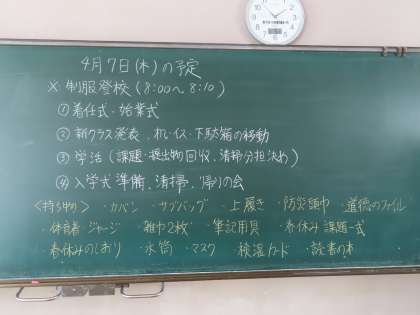 4月7日(木)の予定
※ 制服登校(8:00〜8:10)
①着任式・始業式
②新クラス発表、机・イス・下駄箱の移動
③学活(課題・提出物回収、清掃分担決め)
④入学式準備、清掃、帰りの会
<持ち物> ・カバン ・サブバッグ ・上履き ・防災頭巾 ・道徳のファイル
・体育着・ジャージ ・雑巾2枚 ・筆記用具 ・春休み課題一式
春休みのしおり ・水筒 ・マスク 検温カード ・読書の本